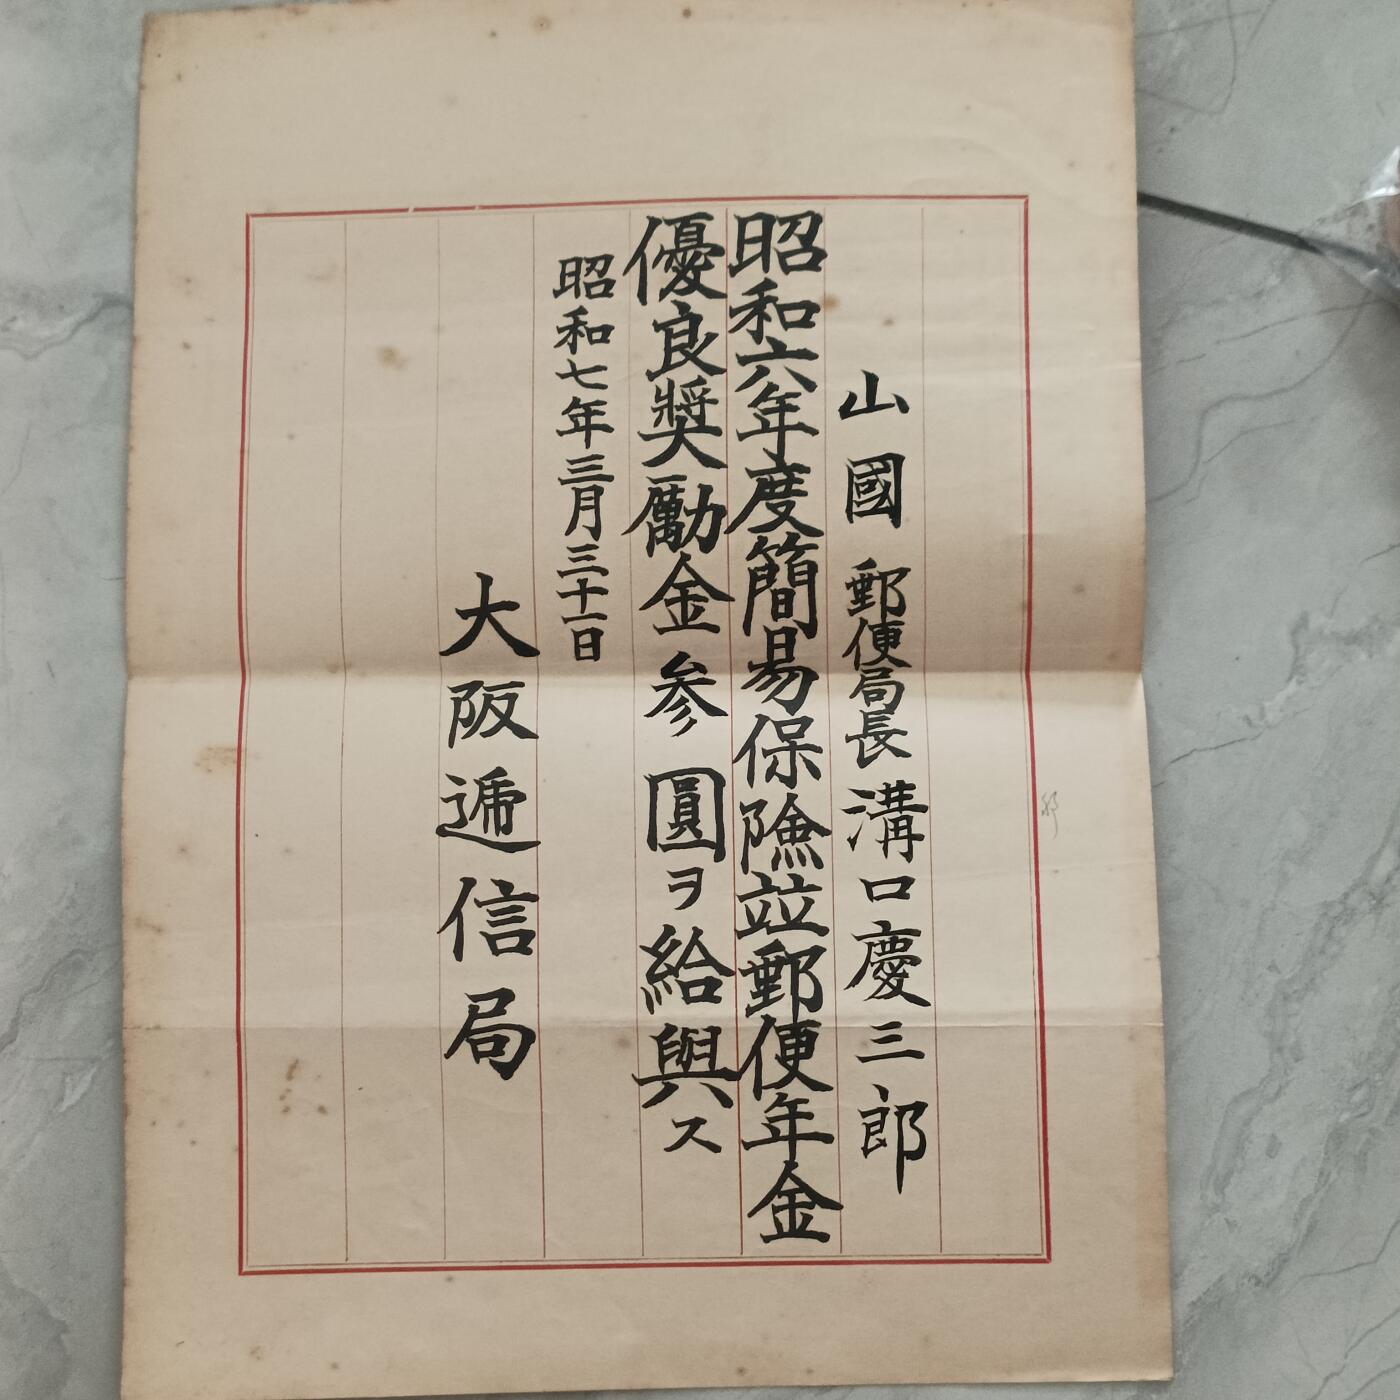 山國郵便局長溝口慶三郎
昭和六年度簡易保險竝郵便年金
優良奬勵金参圓ヲ給與ス
昭和七年三月三十一日
大阪遞信局